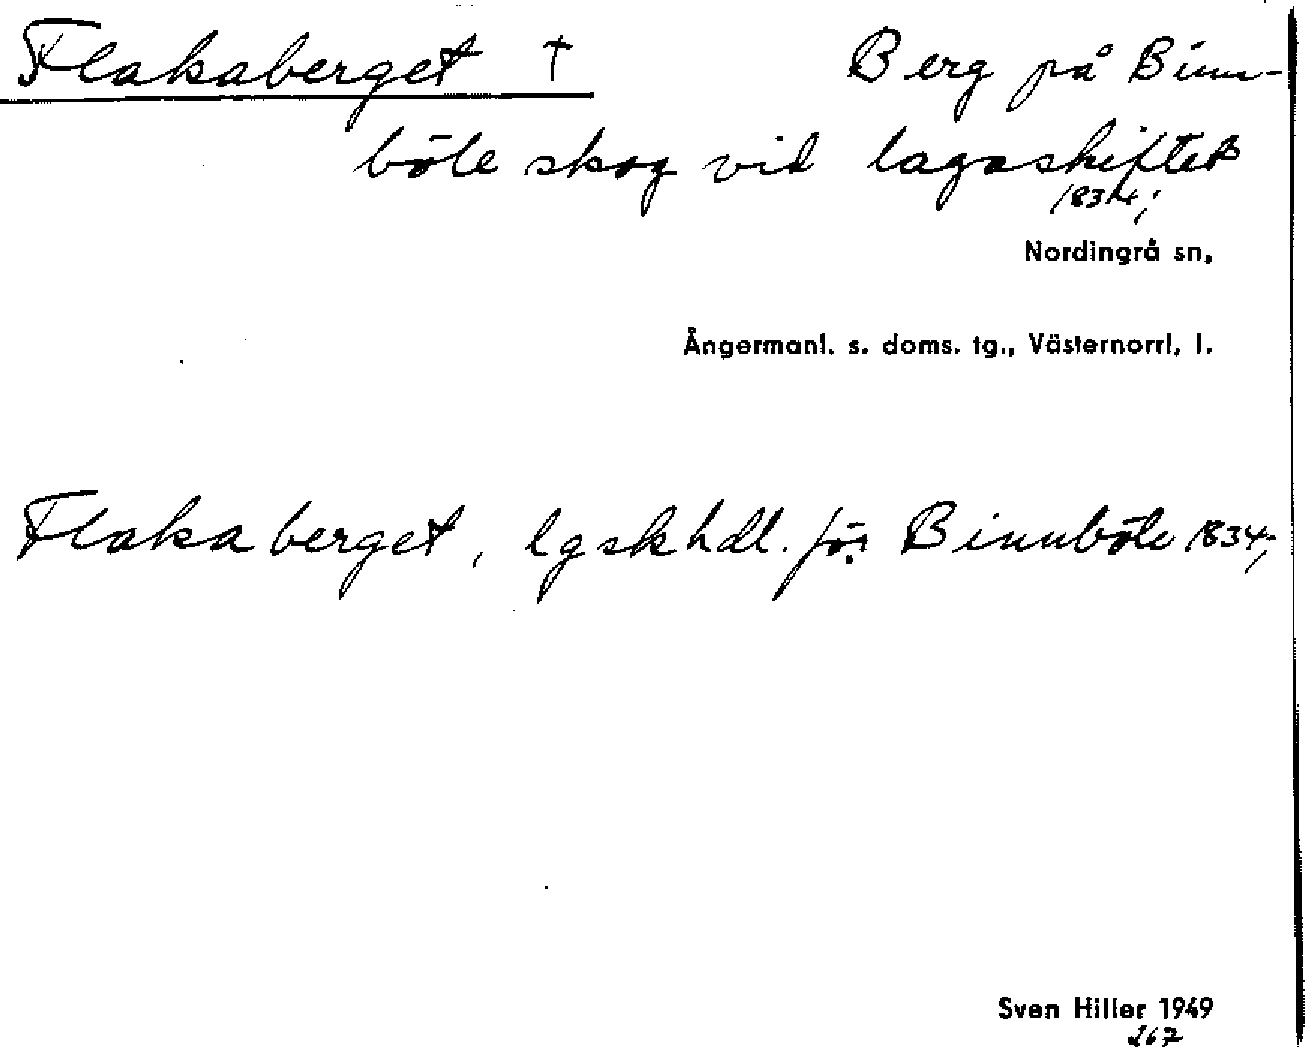 Flakaberget † Berg på Binn-
böle skog vid lagaskiftet
1834;
Nordingrå sn,
Ångermanl. s. doms. tg., Västernorrl, l.
Flakaberget, lgskhdl. för Binnböle 1834;
Sven Hiller 1949
267